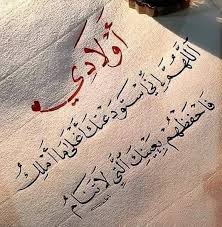 أولادي
اللهم إني استودعتك أغلى ما أملك
فاحفظهم بعينك التي لا تنام